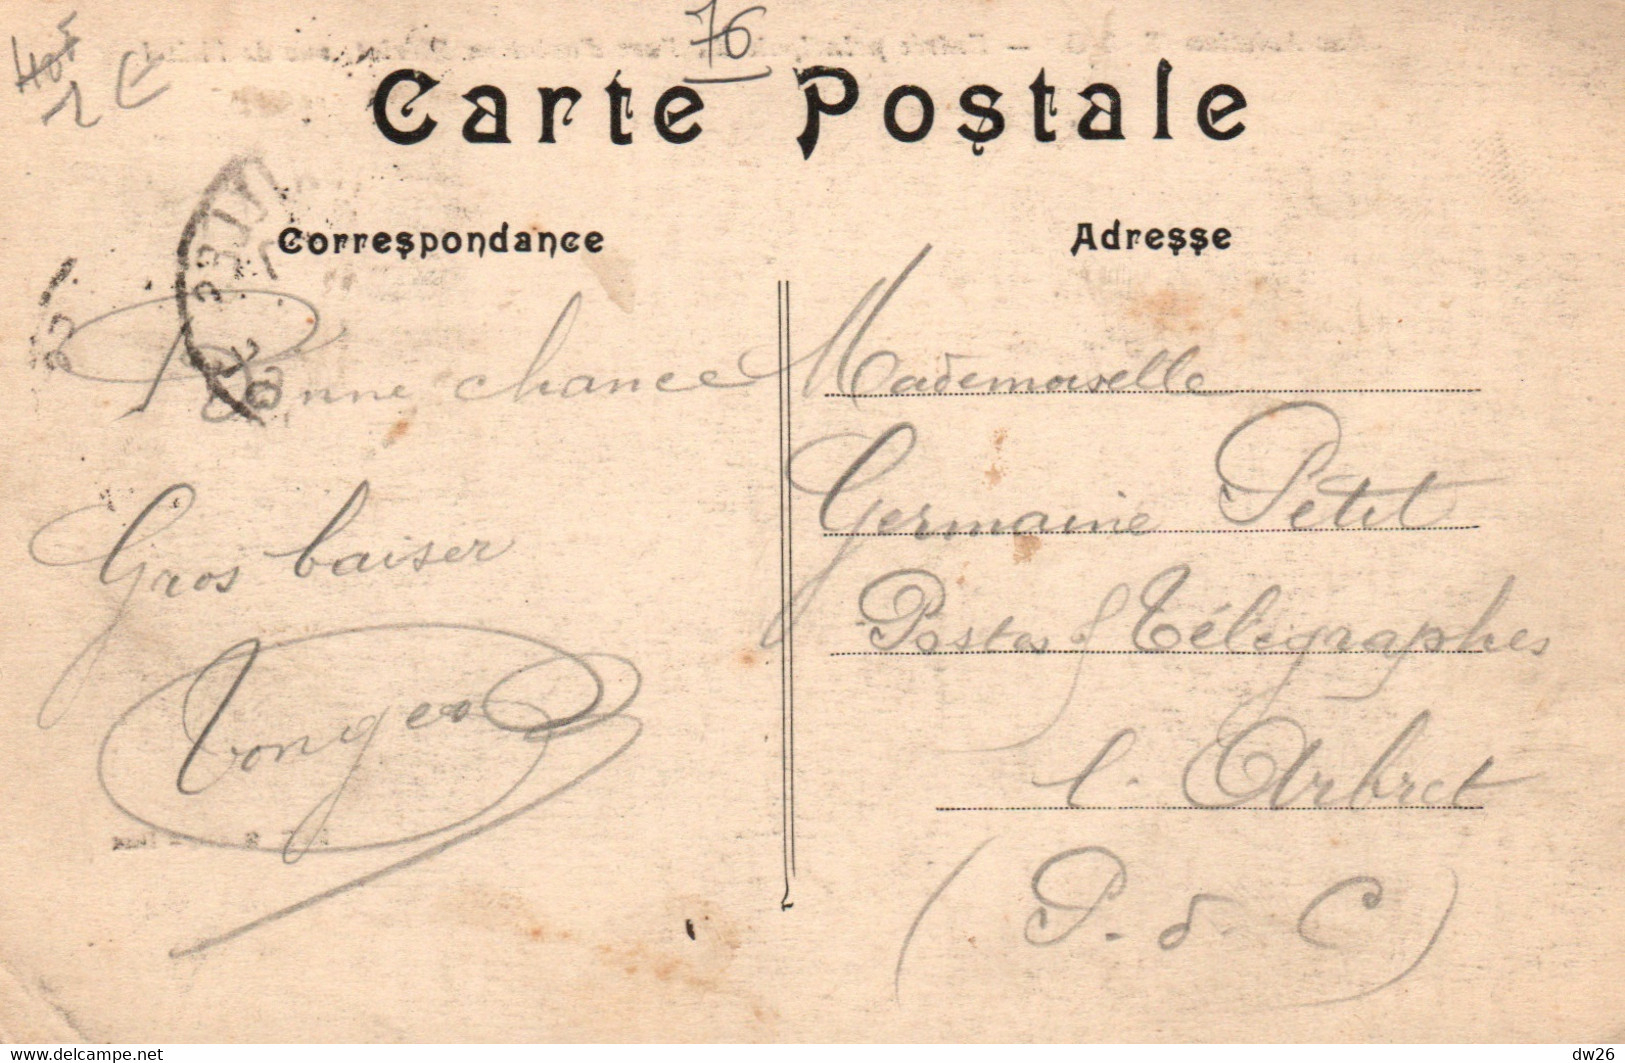 76
40F
2 €
Carte Postale
Correspondance
Adresse
Bonne chance
Gros baiser
Mademoiselle
Germaine Petit
Postes & Télégraphes
l'Arbret
(P. d. C)
www.delcampe.net
dw26